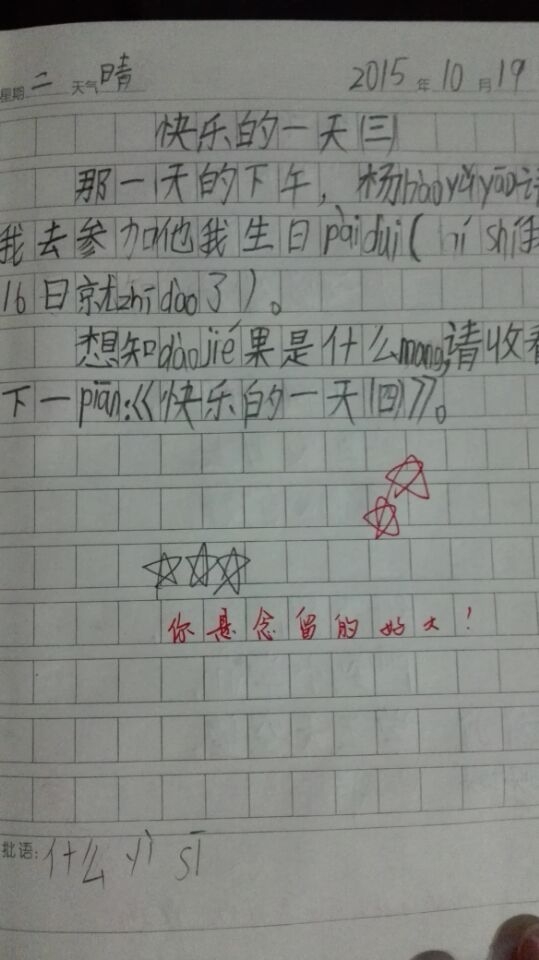 星期 二 天气 晴 2015 年 10 月 19
快乐的一天(三)
那一天的下午，杨hào yǔ yāo请
我去参加他我生日pàiduì( hí shí我
16日就zhī dào了)。
想知dàojié果是什么mang,请收看
下一piān:《快乐的一天(四)》。
你悬念留的好大！
批语: 什么 yì sī